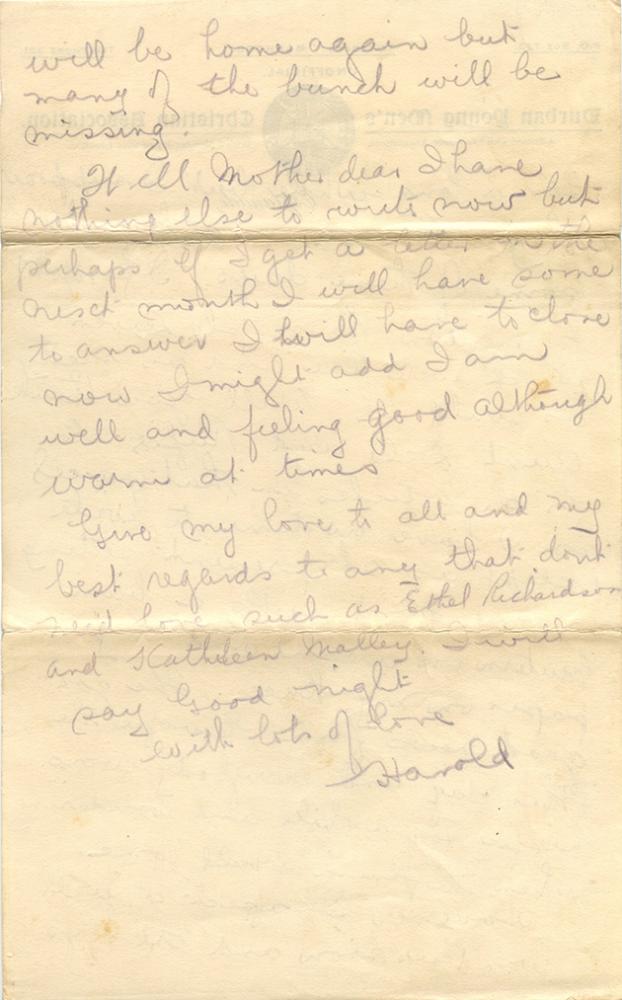 will be home again but
many of the bunch will be
missing.
Well Mother dear I have
nothing else to write now but
perhaps if I get a letter in the
next month I will have some
to answer I will have to close
now I might add I am
well and feeling good although
warm at times
Give my love to all and my
best regards to any that dont
need love such as Ethel Richardson
and Kathleen Malley. I will
say Good night
with lots of love
Harold